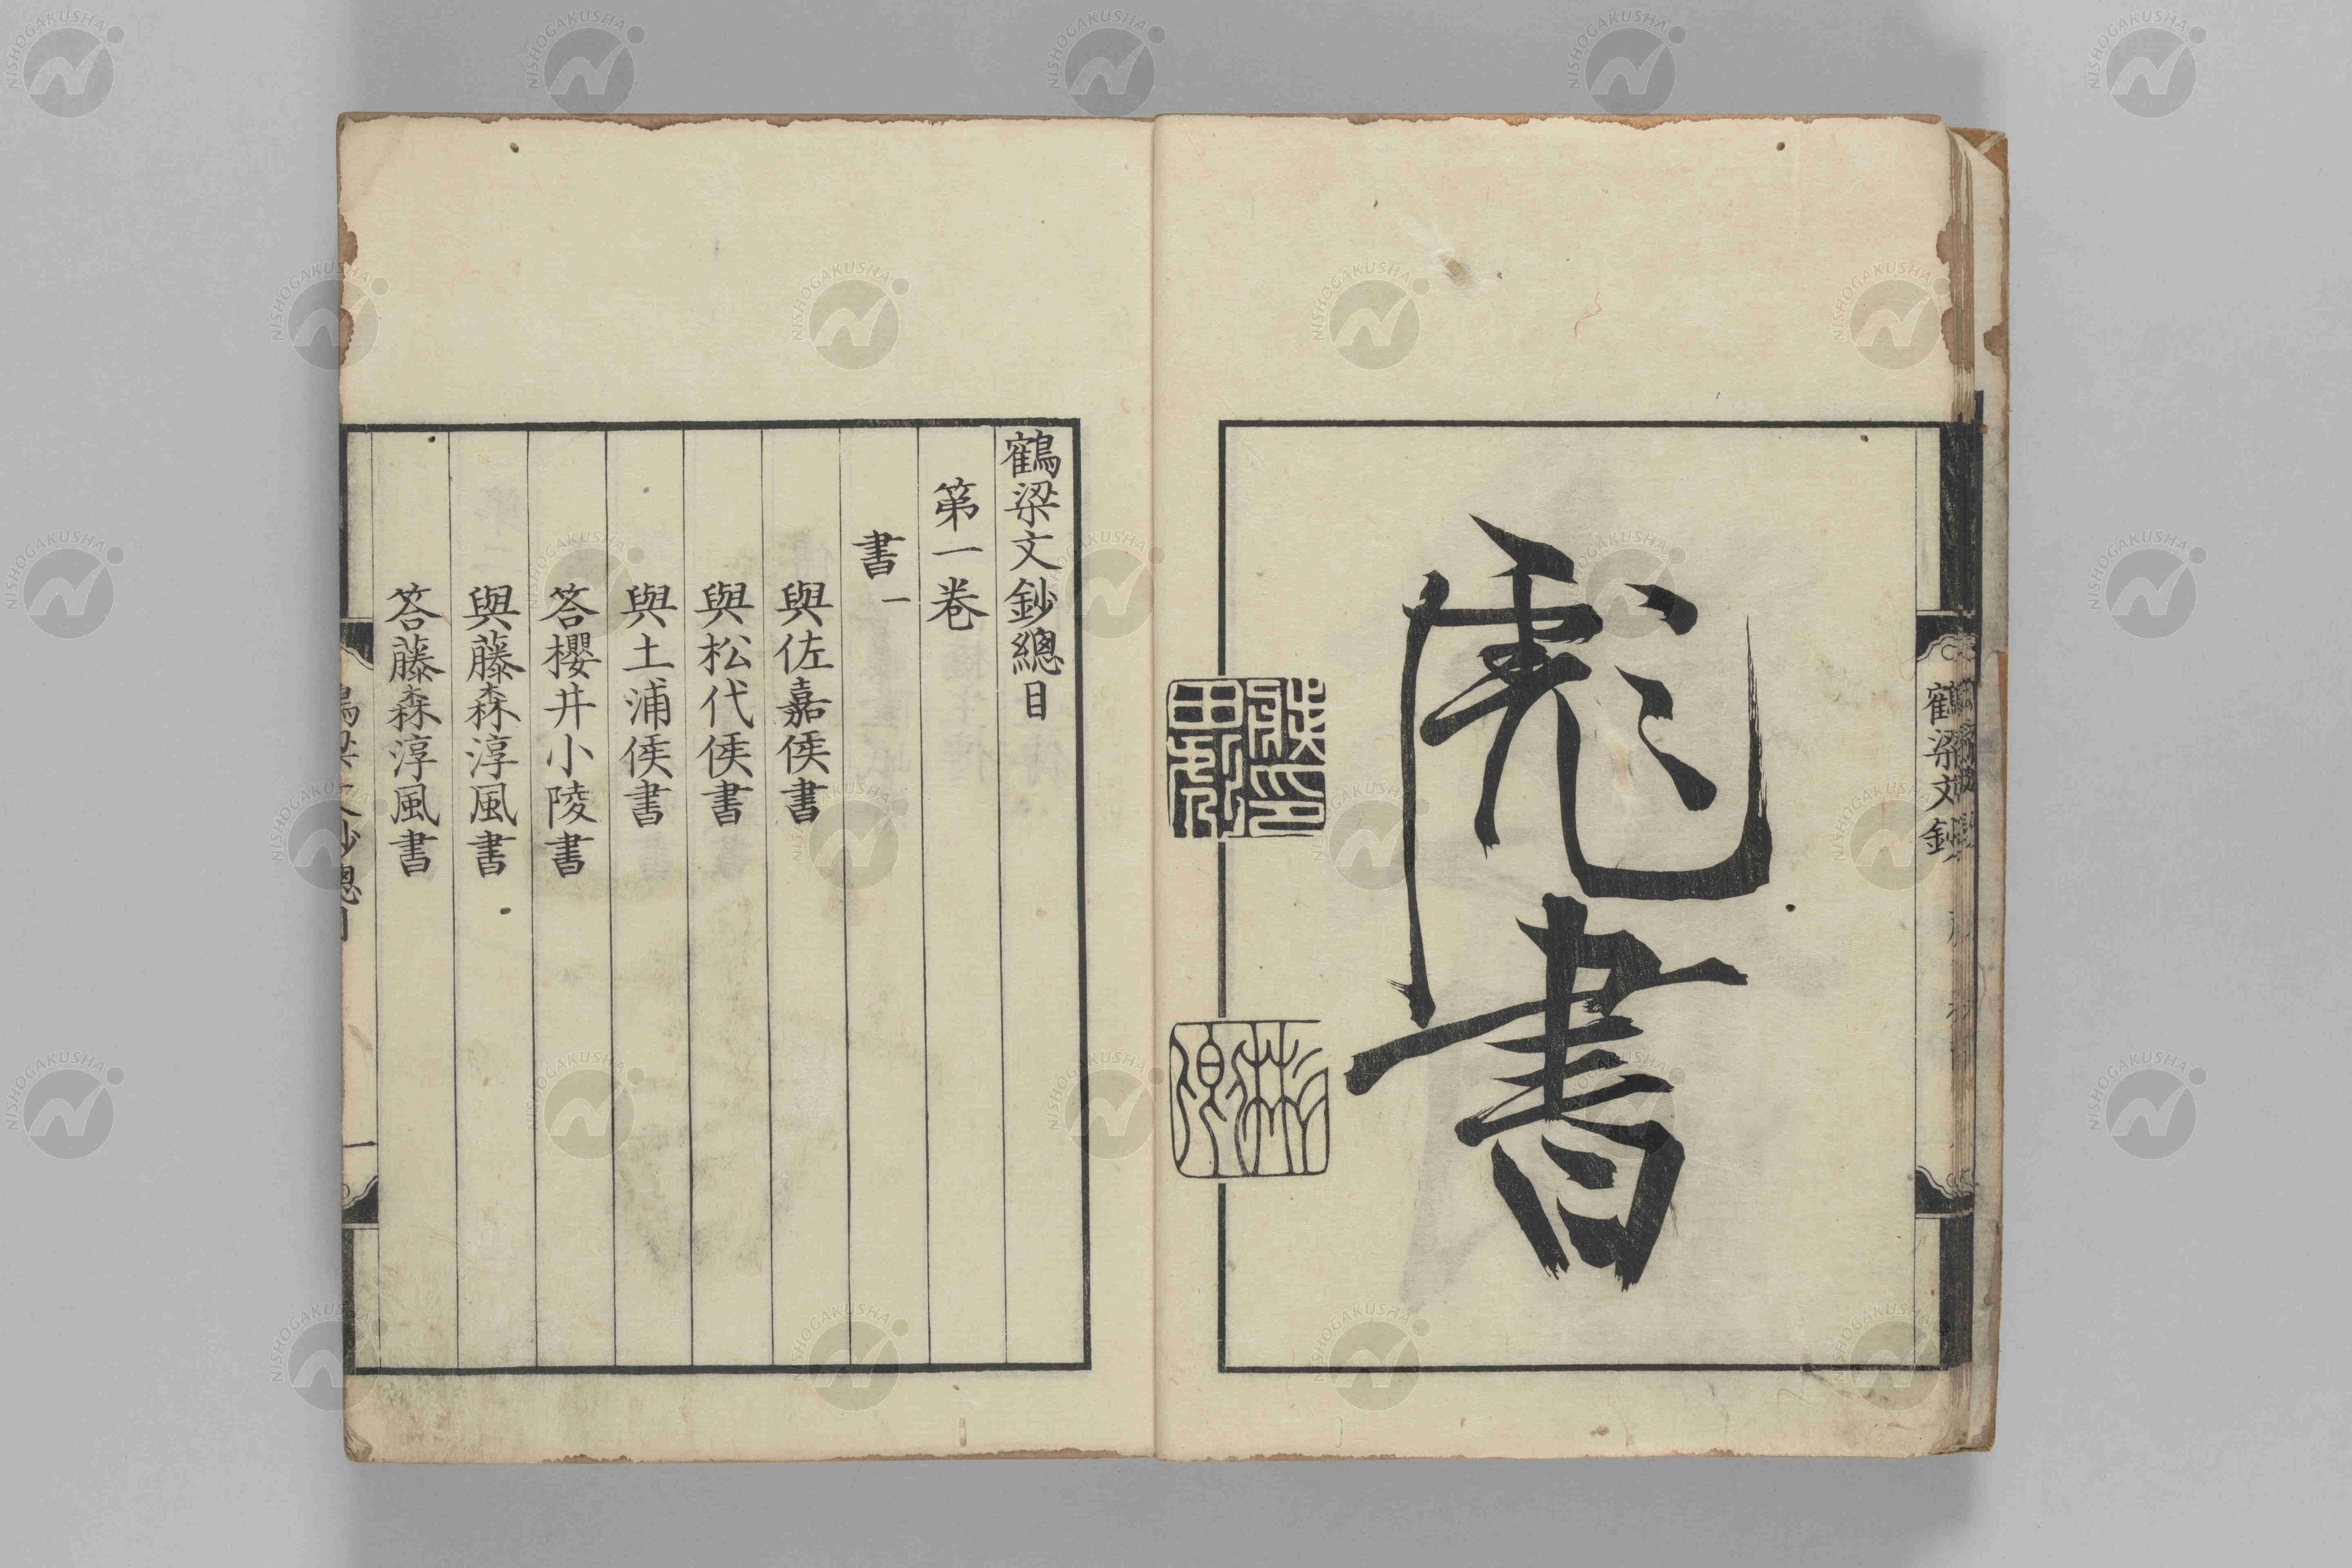 鶴梁文鈔
彪書
鶴梁文鈔總目
第一卷
書一
與佐嘉侯書
與松代侯書
與土浦侯書
答櫻井小陵書
與藤森淳風書
答藤森淳風書
鶴梁文鈔總目 一
NISHOGAKUSHA